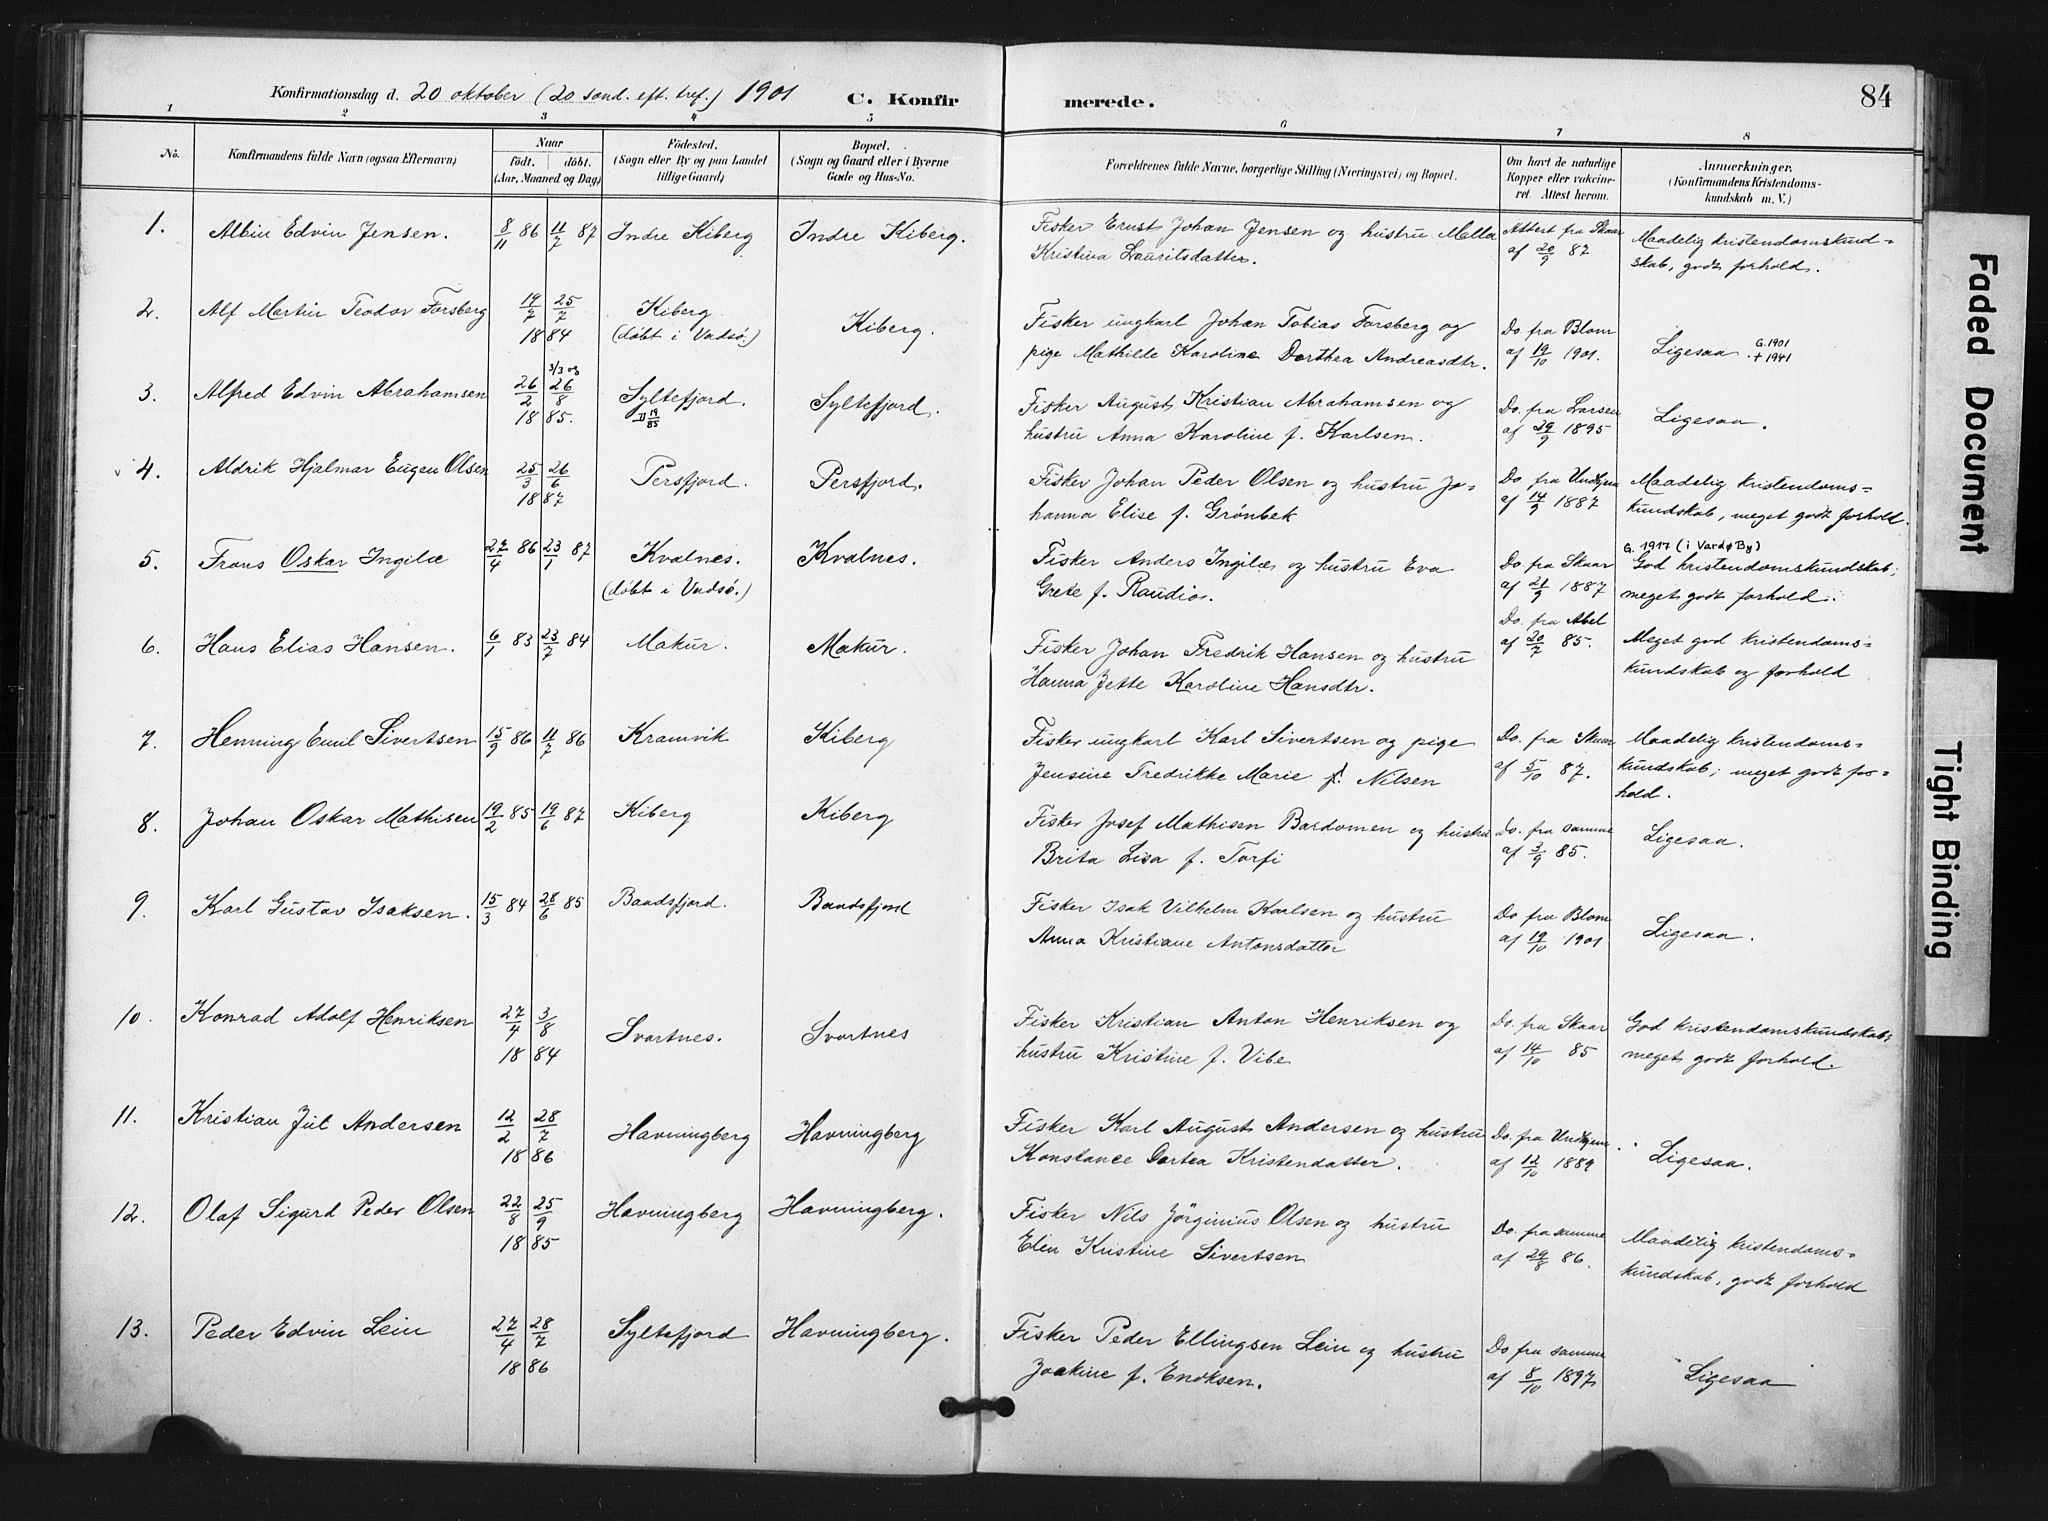 Konfirmationsdag d. 20 oktober (20 sønd. eft. tref.) 1901 C. Konfirmerede. 84
1 2 3 4 5 6 7 8
No. Konfirmandens fulde Navn (ogsaa Efternavn)
Naar født. døbt. (Aar, Maaned og Dag)
Fødested. (Sogn eller By og paa Landet tillige Gaard)
Bopæl. (Sogn og Gaard eller i Byerne Gade og Hus-No.
Forældrenes fulde Navne, borgerlige Stilling (Næringsvei) og Bopæl.
Om havt de naturlige Kopper eller vakcineret Attest herom.
Anmærkninger. (Konfirmandens Kristendomskundskab m. V.)
1. Albin Edvin Jensen. 8/11 86 11/7 87 Indre Kiberg Indre Kiberg. Fisker Ernst Johan Jensen og hustru Malla Attest fra Skaar Maadelig kristendomskund-
Kristina Lauritsdatter. af 20/9 87 skab, godt forhold.
2. Alf Martin Teodor Forsberg 19/7 25/7 Kiberg Kiberg. Fisker ungkarl Johan Tobias Forsberg og Do. fra Blom Ligesaa G. 1901
1884 (døbt i Vadsø.) pige Mathilde Karoline Dorthea Andreasdtr. af 19/10 1901. + 1941
3. Alfred Edvin Abrahamsen 26/2 3/3 og 26/8 Syltefjord. Syltefjord. Fisker August Kristian Abrahamsen og Do. fra Larsen Ligesaa.
1885. D 19/85 hustru Anna Karoline f. Karlsen. af 29/9 1895
4. Aldrik Hjalmar Eugen Olsen 25/3 26/6 Persfjord. Persfjord. Fisker Johan Peder Olsen og hustru Jo- Do. fra Undhjem Maadelig kristendoms-
1887 hanna Elise f. Grønbek af 14/9 1887 kundskab, meget godt forhold.
G. 1917 (i Vardø By)
5. Frans Oskar Ingilæ 27/4 86 23/1 87 Kvalnes. Kvalnes. Fisker Anders Ingilæ og hustru Eva Do. fra Skaar God kristendomskundskab;
(døbt i Vadsø.) Grete f. Raudio. af 21/9 1887 meget godt forhold.
6. Hans Elias Hansen. 6/1 83 23/7 84 Makur. Makur. Fisker Johan Fredrik Hansen og hustru Do. fra Abel Meget god kristendoms-
Hanna Jette Karoline Hansdtr. af 20/7 85. kundskab og forhold
7. Henning Emil Sivertsen 15/9 86 11/7 86 Kramvik Kiberg Fisker ungkarl Karl Sivertsen og pige Do. fra Skaar Maadelig kristendoms-
Jensine Fredrikke Marie f. Nilsen af 5/10 87. kundskab; meget godt for-
hold.
8. Johan Oskar Mathisen 19/2 85 19/6 87 Kiberg Kiberg Fisker Josef Mathisen Bardomen og hustru Do. fra samme Ligesaa.
Brita Lisa f. Torfi af 3/9 85.
9. Karl Gustav Isaksen. 15/3 84 28/6 85 Baadsfjord. Baadsfjord Fisker Isak Vilhelm Karlsen og hustru Do fra Blom Ligesaa.
Anna Kristiane Antonsdatter af 19/10 1901
10. Konrad Adolf Henriksen 27/4 3/8 Svartnes. Svartnes Fisker Kristian Anton Henriksen og Do. fra Skaar God kristendomskundskab;
1884 hustru Kristine f. Vibe. af 14/10 85 meget godt forhold.
11. Kristian Jul Andersen 12/2 28/7 Havningberg Havningberg Fisker Karl August Andersen og hustru Do. fra Undhjem. Ligesaa.
1886 Konstance Dortea Kristendatter. af 12/10 1889
12. Olaf Sigurd Peder Olsen 22/8 25/9 Havningberg Havningberg. Fisker Nils Jörginius Olsen og hustru Do. fra samme Maadelig kristendoms-
1885 Elen Kristine Sivertsen af 29/8 86. kundskab, godt forhold
13. Peder Edvin Lein 27/4 28/7 Syltefjord Havningberg. Fisker Peder Ellingsen Lein og hustru Do fra samme Ligesaa
1886 Joakine f. Enoksen. af 8/10 1897
Faded Document
Tight Binding